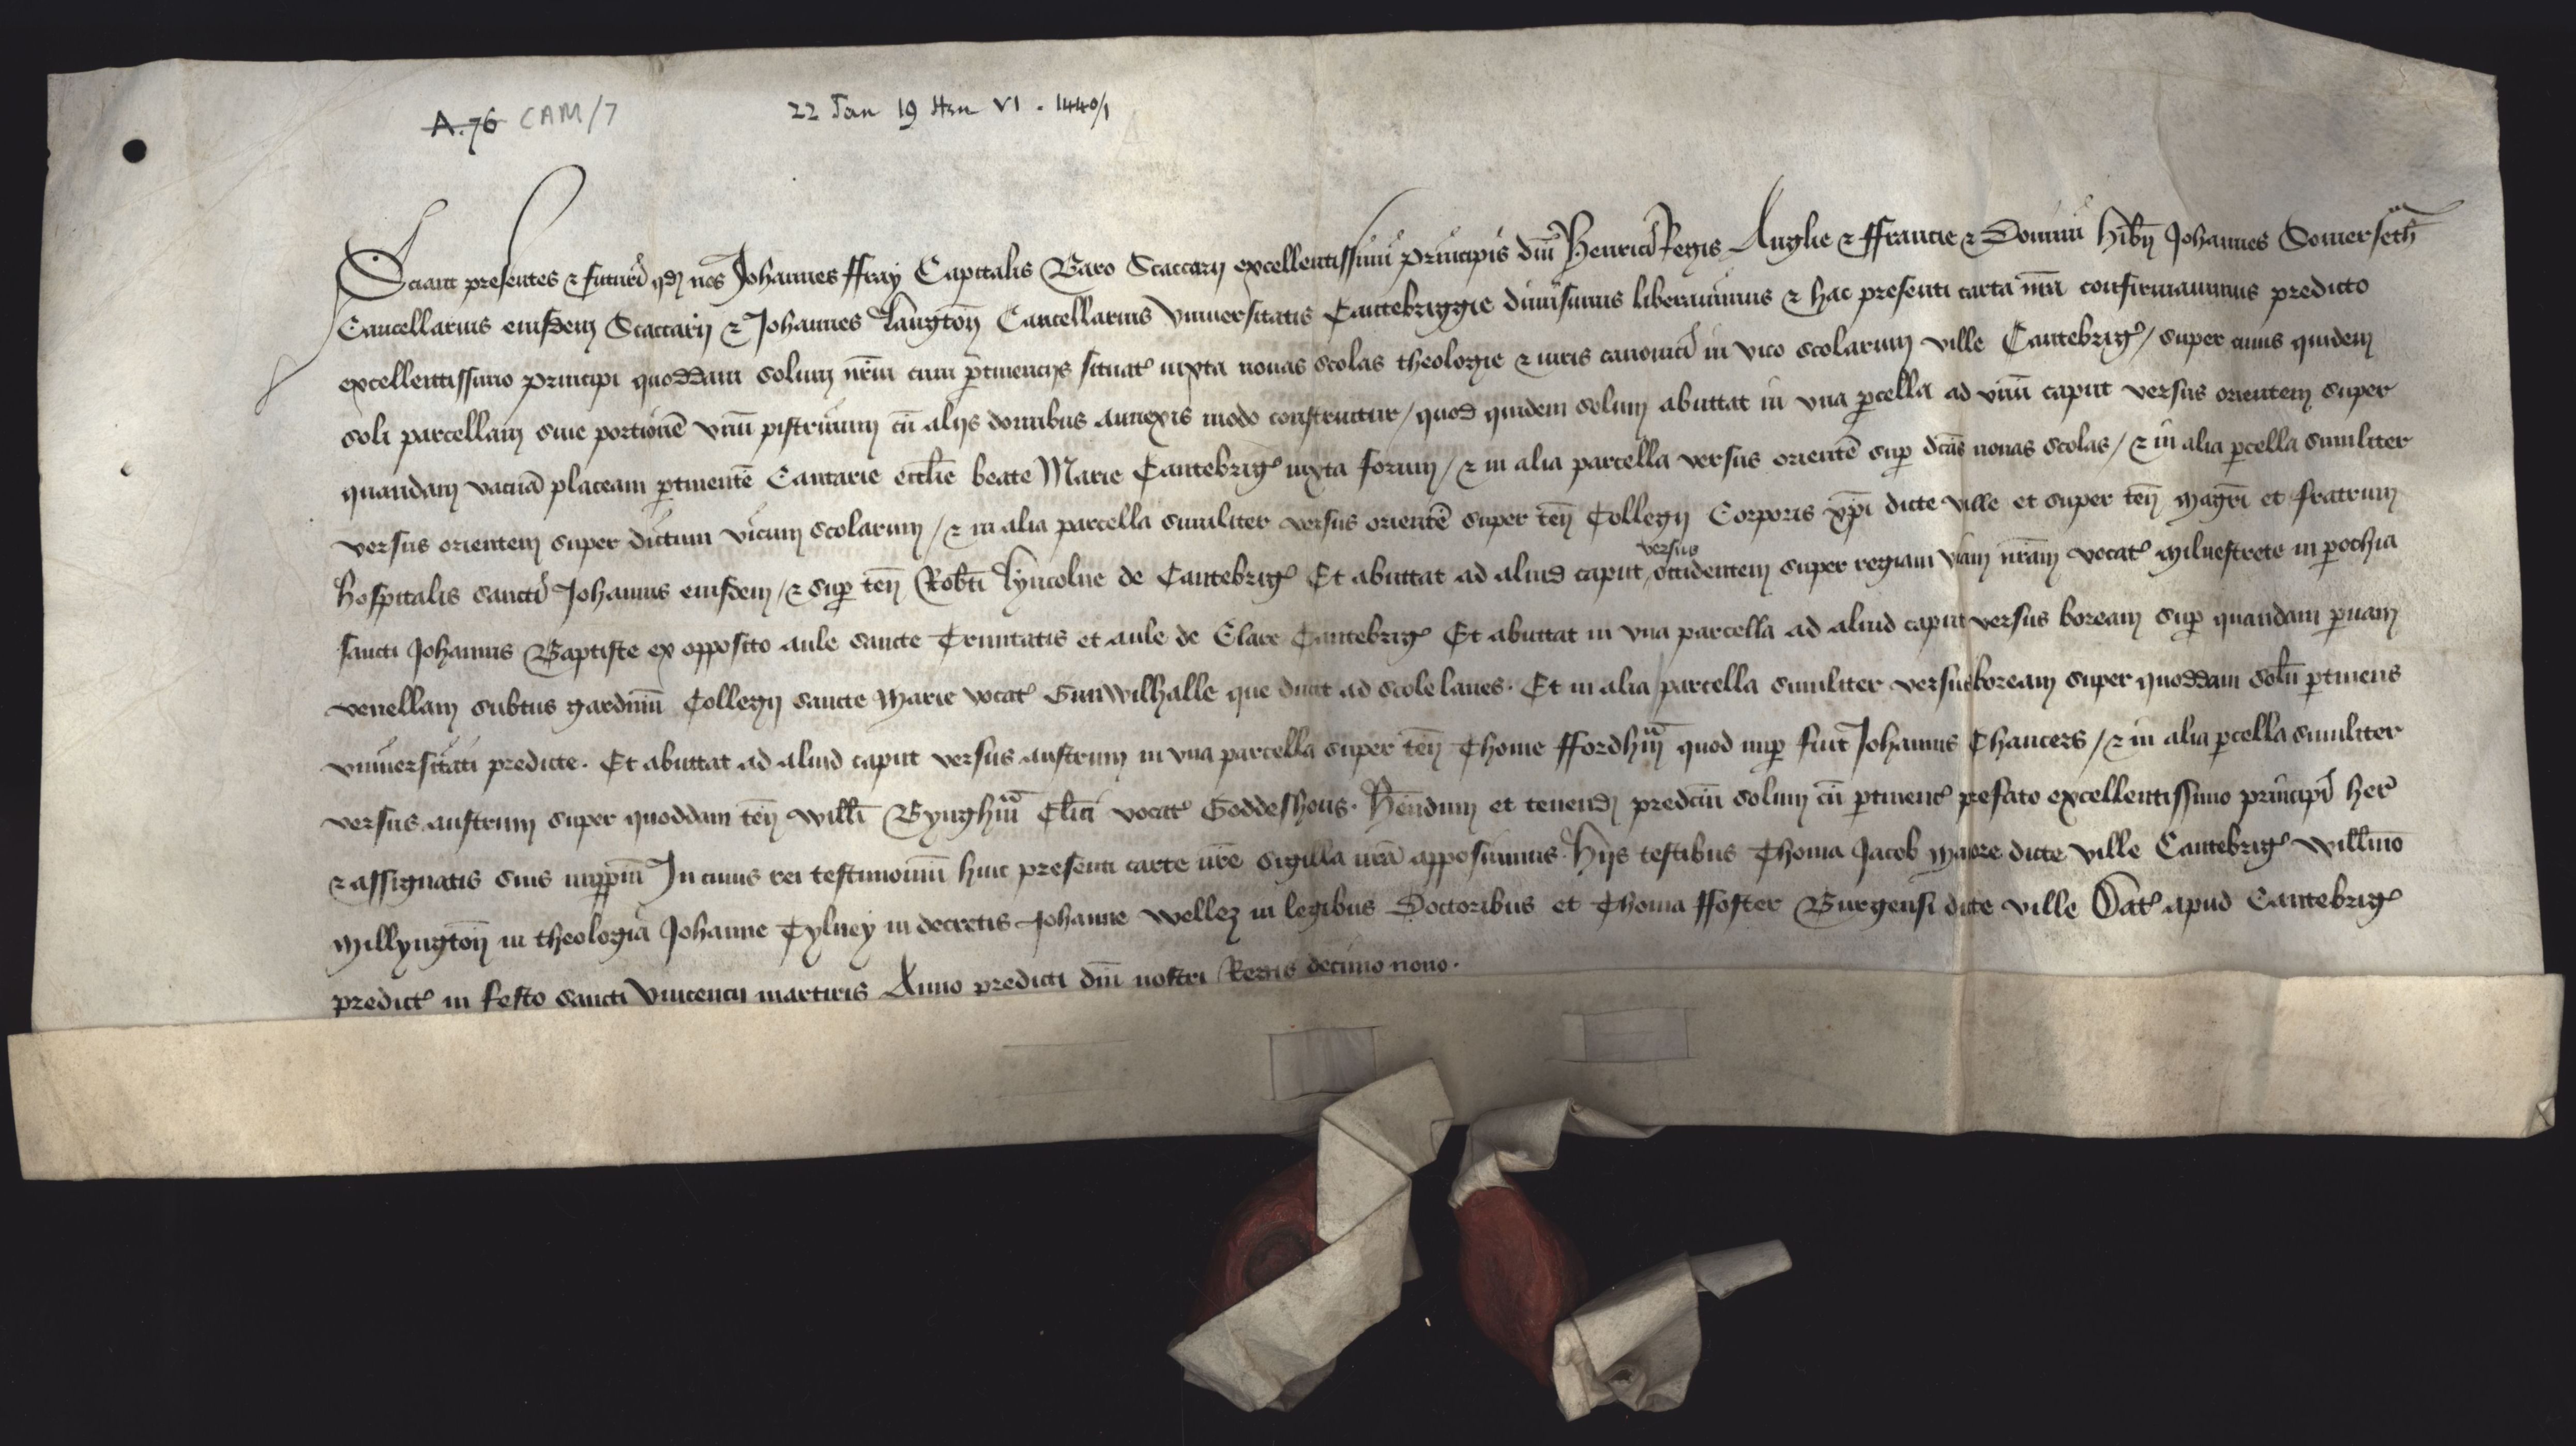 A.76 CAM/7 22 Jan 19 Hen VI . 1440/1
Sciant presentes & futuri qd nos Johannes ffray Capitalis Baro Scaccarij excellentissimi principis dnı̄ Henrici Regis Anglie & ffrancie & Domini hibn̄ Johannes Somerseth
Cancellarius eiusdem Scaccarij & Johannes Langton̄ Cancellarius Vniuersitatis Cantebriggie dimisimus liberauimus & hac presenti carta nr̄a confirmauimus predicto
excellentissimo principi quoddam solum nr̄m cum ꝑtinencijs situat iuxta nouas scolas theologie & iuris canonici in vico scolarum ville Cantebrig / super cuius quidem
soli parcellam siue porcionē vnū pistrinum cū alijs domibus annexis modo construitur / quod quidem solum abuttat in vna ꝑcella ad vnū caput versus orientem super
quandam vacuā placeam ꝑtinentē Cantarie eccl̄ie beate Marie Cantebrig iuxta forum / & in alia parcella versus orientē suꝑ dc̄as nouas scolas / & in alia ꝑcella similiter
versus orientem super dictum vicum scolarum / & in alia parcella similiter versus orientē super ten̄ Collegij Corporis xp̄i dicte ville et super ten̄ magr̄i et fratrum
hospitalis sancti Johannis eiusdem / & suꝑ ten̄ Rob̄ti Lyncolne de Cantebrig Et abuttat ad aliud caput versus occidentem super regiam viam nr̄am vocat Milnestrete in ꝑochia
sancti Johannis Baptiste ex opposito aule sancte Trinitatis et aule de Clare Cantebrig Et abuttat in vna parcella ad aliud caput versus boream suꝑ quandam ꝑuam
venellam subtus gardinū Collegij sancte Marie vocat Gunwilhalle que ducit ad scole lanes . Et in alia parcella similiter versus boream super quoddam solū ꝑtinens
vniuersitati predicte . Et abuttat ad aliud caput versus austrum in vna parcella super ten̄ Thome ffordhm̄ quod nuꝑ fuit Johannis Chaucers / & in alia ꝑcella similiter
versus austrum super quoddam ten̄ Will̄i Bynghm̄ Cl̄ici vocat Goddeshous . Hēndum et tenend predc̄ū solum cū ꝑtinenc prefato excellentissimo principi her
& assignatis suis imꝑpm̄ In cuius rei testimoniū huic presenti carte nr̄e sigilla nr̄a apposuimus . Hijs testibus Thoma Jacob Maiore dicte ville Cantebrig Will̄mo
Millyngton̄ in theologia Johanne Tylney in decretis Johanne Wellez in legibus Doctoribus et Thoma ffoster Burgensi dicte ville Dat apud Cantebrig
predict in festo sancti Vincencij martiris Anno predicti dnı̄ nostri Regis decimo nono .